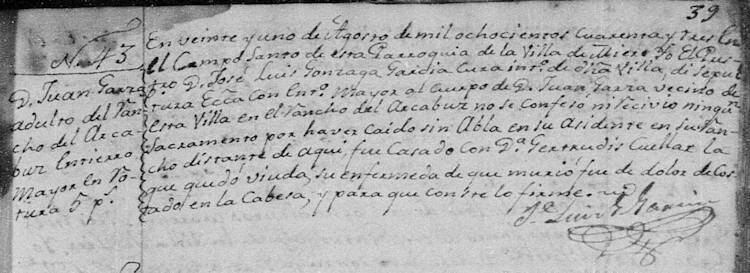 39
N. 43
D. Juan Garza
adulto del Ran-
cho del Arca-
buz Entierro
Mayor en fa-
tura 5 p.s
En veinte y uno de Agosto de mil ochocientos Cuarenta y tres En
el Campo Santo de esta Parroquia de la Villa de Mier Yo El Pres-
tro D. José Luis Gonzaga Garcia Cura int.o de dha Villa, di Sepul
tura Ecca Con Ent.o Mayor al Cuerpo de D. Juan Garza vecino de
Esta Villa en el Rancho del Arcabuz no se Confeso ni Recivio ningun
Sacramento por haver Caido sin Abla en su Asidente en su Ran-
cho distante de Aqui, fue Casado con D.a Gertrudis Cuellar la
que quedo viuda, su enfermeda de que murió fue de dolor de Cos
tado, en la Cabesa, y para que Conste lo firme.
J.e Luis G. Garcia